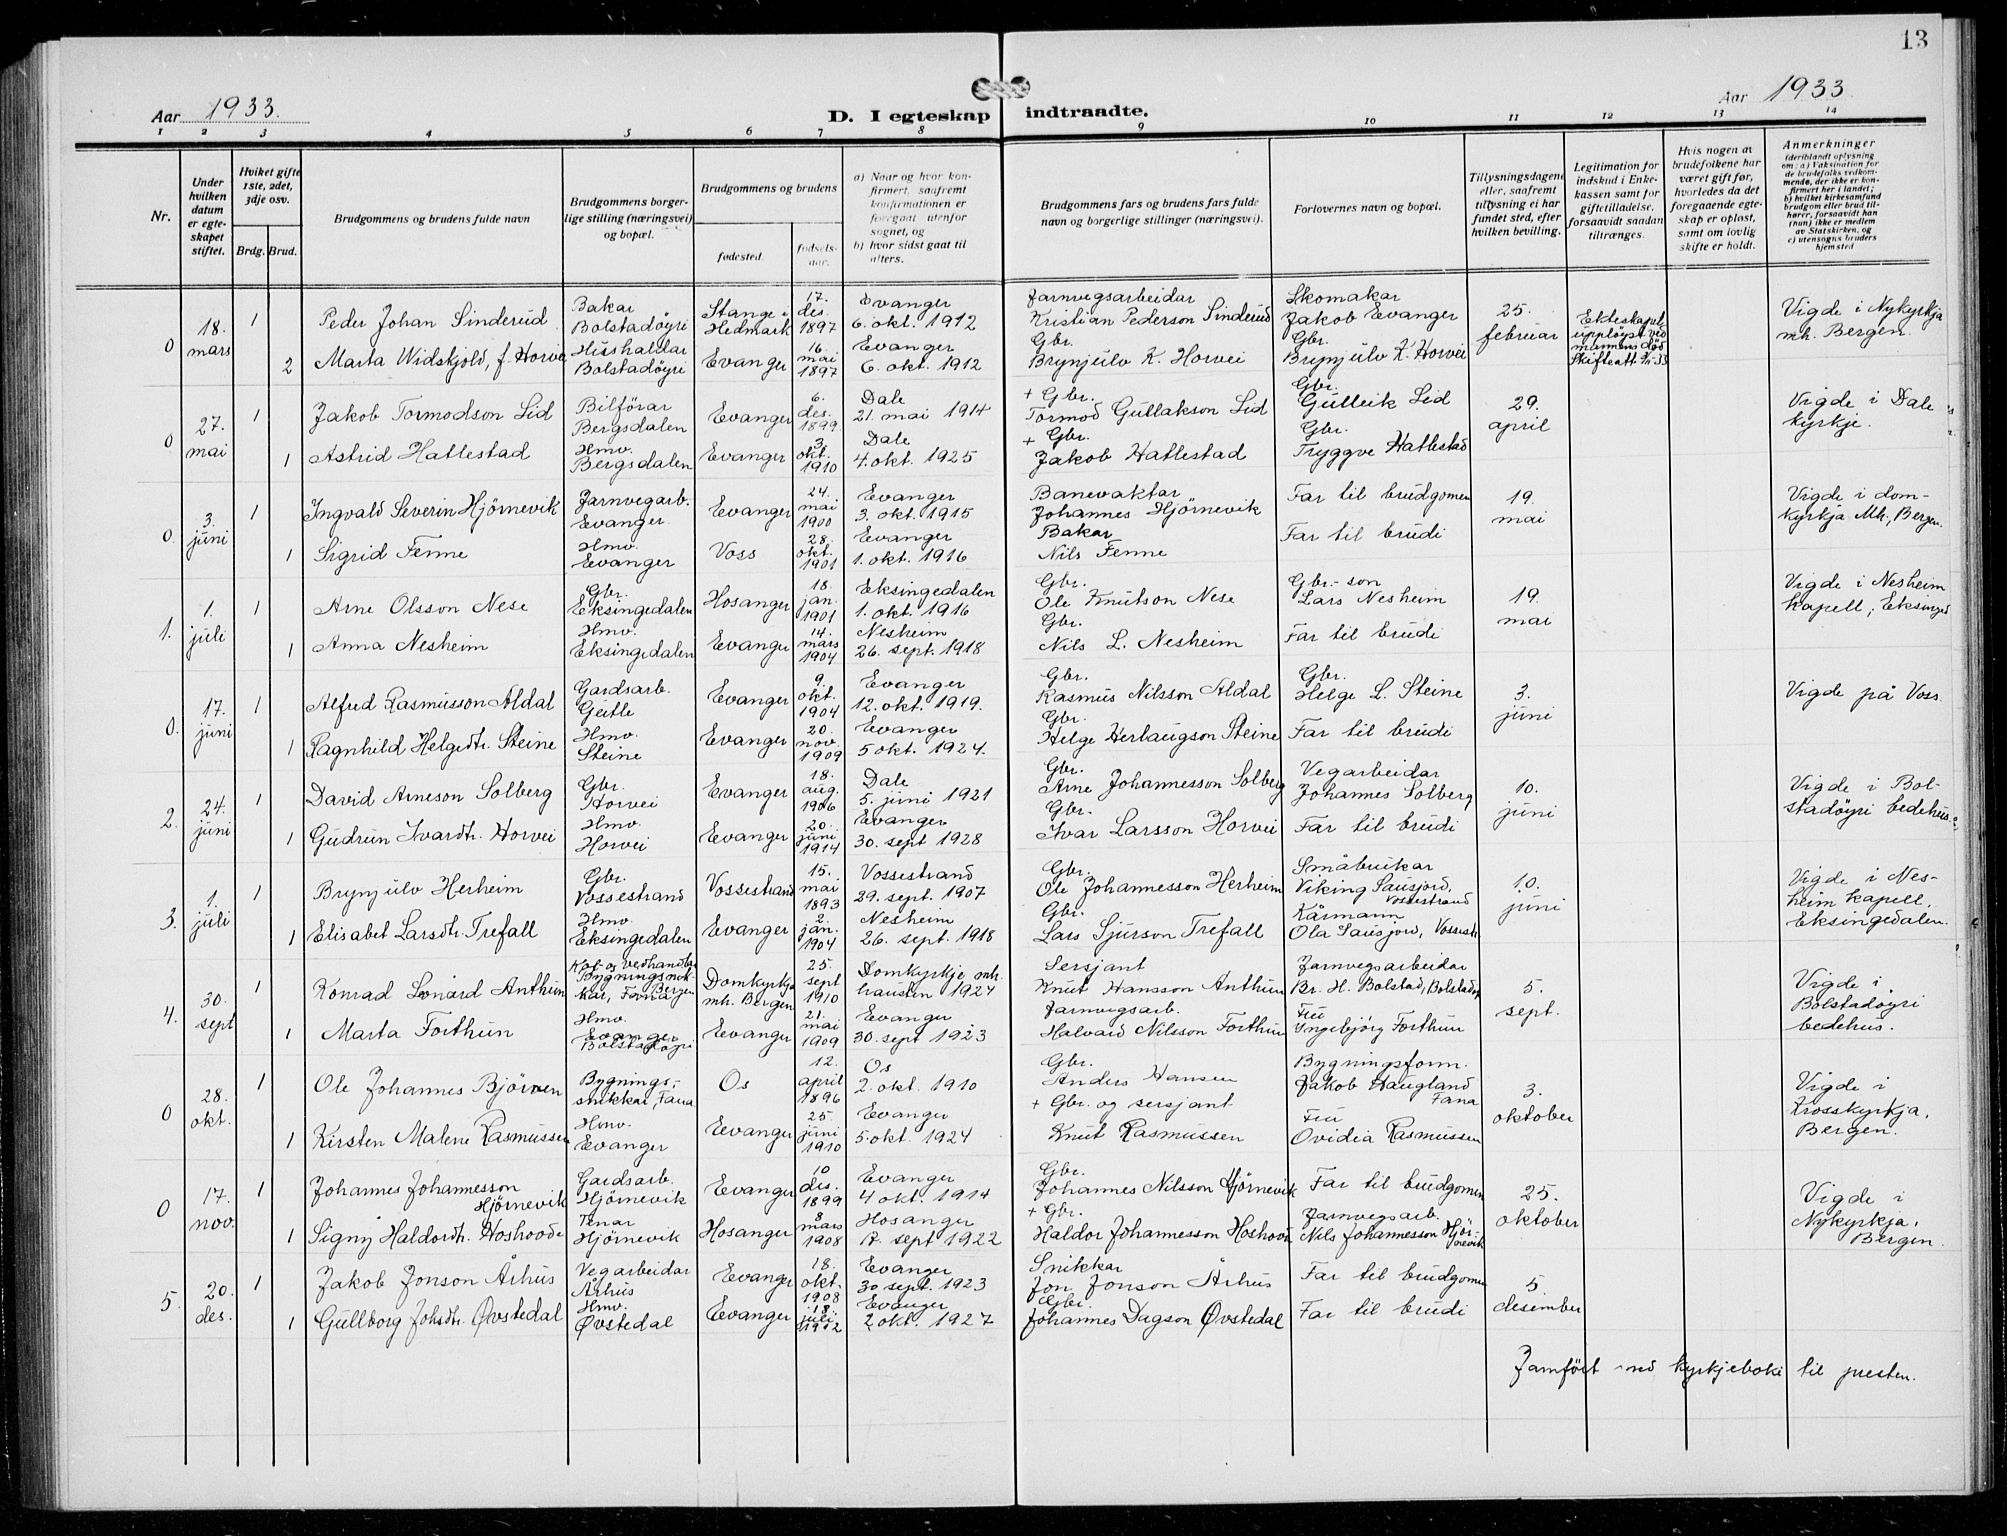 13
Aar 1933.
D. I egteskap indtraadte.
Aar 1933
1 2 3 4 5 6 7 8 9 10 11 12 13 14
Nr.
Under hvilken datum er egteskapet stiftet.
Hviket gifte 1ste, 2det, 3dje osv.
Brdg. Brud.
Brudgommens og brudens fulde navn
Brudgommens borgerlige stilling (næringsvei) og bopæl.
Brudgommens og brudens
fødested.
fødselsaar.
a) Naar og hvor konfirmert, saafremt konfirmationen er foregaat utenfor sognet, og
b) hvor sidst gaat til alters.
Brudgommens fars og brudens fars fulde navn og borgerlige stillinger (næringsvei).
Forlovernes navn og bopæl.
Tillysningsdagene eller, saafremt tillysning ei har fundet sted, efter hvilken bevilling.
Legitimation for indskud i Enkekassen samt for giftetilladelse, forsaavidt saadan tiltrænges.
Hvis nogen av brudefolkene har været gift før, hvorledes da det foregaaende egteskap er opløst, samt om lovlig skifte er holdt.
Anmerkninger
(deriblandt oplysning om: a) Vaksination for de brudefolks vedkommende, der ikke er konfirmert her i landet; b) hvilket kirkesamfund brudgom eller brud tilhører, forsaavidt han (hun) ikke er medlem av Statskirken, og c) utensogns bruders hjemsted
0 18. mars 1 Peder Johan Sinderud Bakar Bolstadøyri Stange i Hedmark 17. des. 1897 Evanger 6. okt. 1912 Jarnvegsarbeidar Kristian Pederson Sinderud Skomakar Jakob Evanger 25. februar Ekteskapet uppløyst ved mannens død Skifteatt Vigde i Nykyrkja mh. Bergen.
2 Marta Widskjold, f. Horvei Hushaldar Bolstadøyri Evanger 16. mai 1897 Evanger 6. okt. 1912 Gbr. Brynjulv K. Horvei Gbr. Brynjulv K. Horvei
0 27. mai 1 Jakob Tormodson Lid Bilførar Bergsdalen Evanger 6. des. 1899. Dale 21. mai 1914 + Gbr. Tormod Gullakson Lid Gbr. Gulleik Lid 29. april Vigde i Dale kyrkje.
1 Astrid Hatlestad Hmv. Bergsdalen Evanger 3. okt. 1910 Dale 4. okt. 1925 + Gbr. Jakob Hatlestad Gbr. Tryggve Hatlestad
0. 3. juni 1 Ingvald Severin Hjörnevik Jarnvegarb. Evanger Evanger 24. mai 1900 Evanger 3. okt. 1915 Banevaktar Johannes Hjörnevik Far til brudgomen 19. mai Vigde i domkyrkja Mh., Bergen.
1 Sigrid Fenne Hmv. Evanger Voss 28. okt. 1901 Evanger 1. okt. 1916 Bakar Nils Fenne Far til brudi
1. 1. juli 1 Arne Olsson Nese Gbr. Eksingedalen Hosanger 18. jan. 1901 Eksingedalen 1. okt. 1916 Gbr. Ole Knutson Nese Gbr.-son Lars Nesheim 19. mai Vigde i Nesheim kapell, Eksinged
1 Anna Nesheim Hmv. Eksingedalen Evanger 14. mars 1904 Nesheim 26. sept. 1918 Gbr. Nils L. Nesheim Far til brudi
0. 17. juni 1 Alfred Rasmusson Aldal Gardsarb. Geitle Evanger 9. okt. 1904 Evanger 12. okt. 1919. Gbr. Rasmus Nilsson Aldal Gbr. Helge L. Steine 3. juni Vigde på Voss.
1 Ragnhild Helgedtr. Steine Hmv. Steine Evanger 20. nov. 1909 Evanger 5 okt. 1924. Gbr. Helge Herlaugson Steine Far til brudi
2. 24. juni 1 David Arneson Solberg Gbr. Horvei Evanger 18. aug. 1906 Dale 5. juni 1921 Gbr. Arne Johannesson Solberg Vegarbeidar Johannes Solberg 10. juni Vigde i Bolstadøyri bedehus.
1 Gudrun Ivardtr. Horvei Hmv. Horvei Evanger 20. juni 1914 Evanger 30. sept 1928 Gbr. Ivar Larsson Horvei Far til brudi
3. 1. juli 1 Brynjulv Herheim Gbr. Vossestrand Vossestrand 15. mai 1893 Vossestrand 29. sept. 1907 Gbr. Ole Johannesson Herheim Småbrukar Viking Sausjord, Vossestrand 10. juni Vigde i Nesheim kapell, Eksingedalen.
1 Elisabet Larsdtr. Trefall Hmv. Eksingedalen Evanger 2. jan. 1904 Nesheim 26. sept. 1918 Gbr. Lars Sjurson Trefall Kårmann Ola Sausjord, Vossestr
4. 30. sept 1 Konrad Leonard Anthun Kol- og vedhandlar Bergen Bygningsnikkar, Fana Domkyrkja mh. Bergen 25. sept 1910 Domkyrkje mh. hausten 1924 Sersjant Knut Hansson Anthun Jarnvegsarbeidar Br. H. Bolstad, Bolstadøyri 5. sept. Vigde i Bolstadøyri bedehus.
1 Marta Forthun Hmv. Evanger Bolstadøyri Evanger 21. mai 1909 Evanger 30. sept 1923 Jarnvegsarb. Halvard Nilsson Forthun Fru Ingebjörg Forthun
0 28. okt. 1 Ole Johannes Bjørnen Bygningssnikkar, Fana Os 12. april 1896 Os 2. okt. 1910 Gbr. Anders Hansen Bygningsform. Jakob Haugland Fana 3. oktober Vigde i Krosskyrkja, Bergen.
1 Kirsten Malene Rasmussen Hmv. Evanger Evanger 25 juni 1910 Evanger 5. okt. 1924 + Gbr. og sersjant Knut Rasmussen Fru Ovidia Rasmussen
0 17. nov. 1 Johannes Johannesson Hjörnevik Gardsarb. Hjörnevik Evanger 10 des. 1899 Evanger 4 okt. 1914 Gbr. Johannes Nilsson Hjörnevik Far til brudgomen 25. oktober Vigde i Nykyrkja, Bergen.
1 Signy Haldordtr. Hoshovde Tenar Hjörnevik Hosanger 8 mars 1908 Hosanger 17. sept 1922 + Gbr. Haldor Johannesson Hoshovd Jarnvegsarb. Nils Johannesson Hjörnevik
5 20. des. 1 Jakob Jonson Århus Vegarbeidar Århus Evanger 18. okt. 1908 Evanger 30 sept. 1923 Snikkar Jon Jonson Århus Far til brudgomen 5. desember
1 Gullborg Johsdtr. Øvstedal Hmv. Øvstedal Evanger 18. juli 1912 Evanger 2 okt. 1927 Gbr. Johannes Dagson Øvstedal Far til brudi
Jamført med kyrkjeboki til presten.